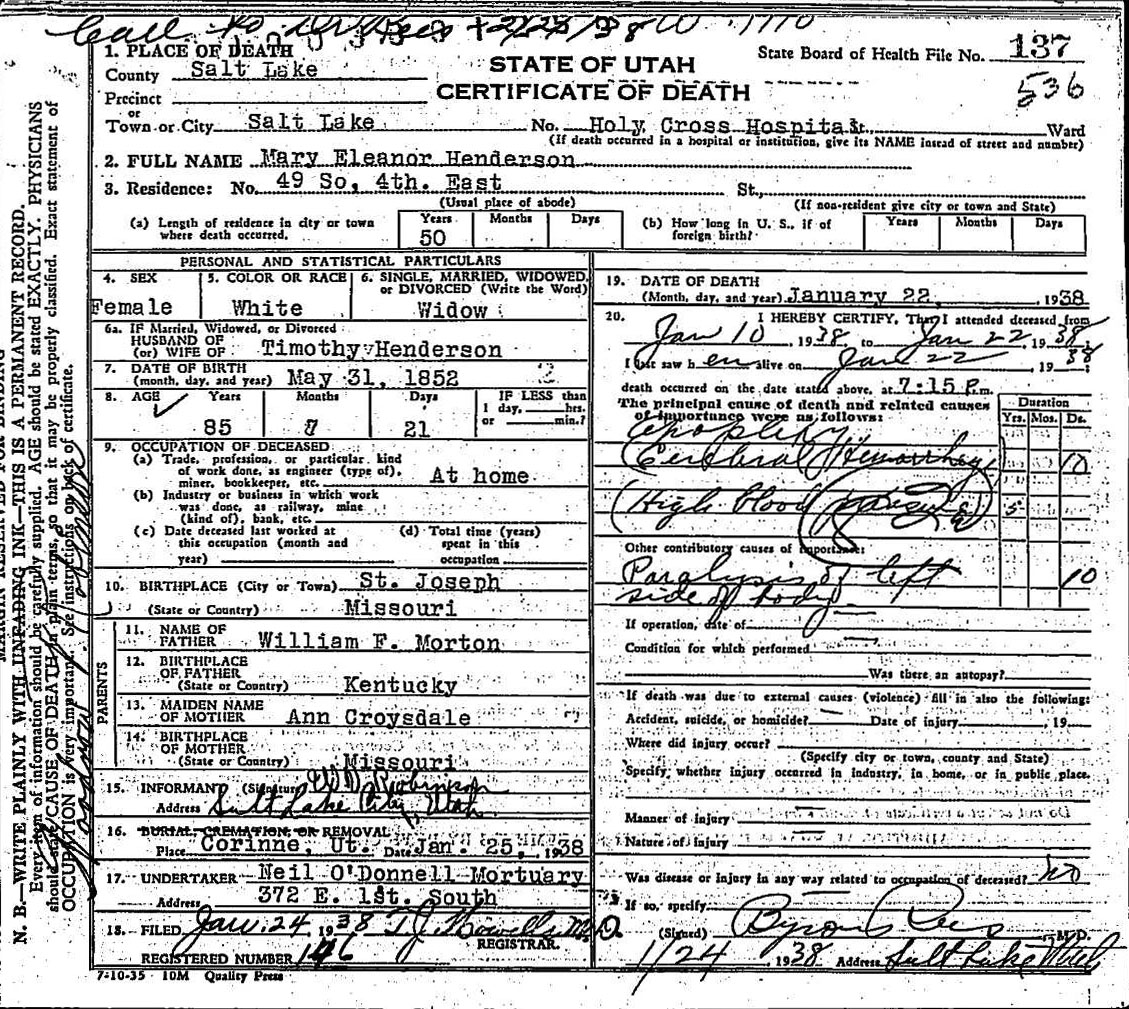 Call to
1. PLACE OF DEATH
County Salt Lake
STATE OF UTAH
CERTIFICATE OF DEATH
State Board of Health File No. 137
536
Precinct
or
Town or City Salt Lake No. Holy Cross Hospital St., Ward
(If death occurred in a hospital or institution, give its NAME instead of street and number)
2. FULL NAME Mary Eleanor Henderson
3. Residence: No. 49 So, 4th. East St.,
(Usual place of abode) (If non-resident give city or town and State)
(a) Length of residence in city or town where death occurred. Years 50 Months Days
(b) How long in U. S., if of foreign birth? Years Months Days
PERSONAL AND STATISTICAL PARTICULARS
4. SEX Female
5. COLOR OR RACE White
6. SINGLE, MARRIED, WIDOWED, or DIVORCED (Write the Word) Widow
6a. IF Married, Widowed, or Divorced
HUSBAND OF
(or) WIFE OF Timothy Henderson
7. DATE OF BIRTH
(month, day, and year) May 31, 1852
8. AGE Years Months Days IF LESS than
1 day, hrs.
or min.?
85 7 21
9. OCCUPATION OF DECEASED
(a) Trade, profession, or particular kind
of work done, as engineer (type of),
miner, bookkeeper, etc. At home
(b) Industry or business in which work
was done, as railway, mine
(kind of), bank, etc.
(c) Date deceased last worked at
this occupation (month and
year)
(d) Total time (years)
spent in this
occupation
10. BIRTHPLACE (City or Town) St. Joseph
(State or Country) Missouri
PARENTS
11. NAME OF
FATHER William F. Morton
12. BIRTHPLACE
OF FATHER
(State or Country) Kentucky
13. MAIDEN NAME
OF MOTHER Ann Croysdale
14. BIRTHPLACE
OF MOTHER
(State or Country) Missouri
15. INFORMANT (Signature) W D Robinson
Address Salt Lake City, Utah
16. BURIAL, CREMATION, OR REMOVAL
Place Corinne, Ut. Date Jan. 25, 1938
17. UNDERTAKER Neil O'Donnell Mortuary
Address 372 E. 1st. South
18. FILED Jan. 24 1938 T J Howells M.D.
REGISTRAR.
REGISTERED NUMBER 146
7-10-35 10M Quality Press
19. DATE OF DEATH
(Month, day, and year) January 22, 1938
20. I HEREBY CERTIFY, That I attended deceased from
Jan 10, 1938, to Jan 22, 1938
I last saw her alive on Jan 22, 1938
death occurred on the date stated above, at 7:15 P.m.
The principal cause of death and related causes
of importance were as follows:
Duration
Yrs. Mos. Ds.
Apoplexy
(Cerebral Hemorrhage) 10
(High blood pressure) 5
Other contributory causes of importance:
Paralysis of left
side of body 10
If operation, date of
Condition for which performed
Was there an autopsy?
If death was due to external causes (violence) fill in also the following:
Accident, suicide, or homicide? Date of injury , 19
Where did injury occur?
(Specify city or town, county and State)
Specify whether injury occurred in industry, in home, or in public place.
Manner of injury
Nature of injury
Was disease or injury in any way related to occupation of deceased? No
If so, specify
(Signed) Byron Rees M.D.
1/24 1938 Address Salt Lake Utah
MARGIN RESERVED FOR BINDING
N. B.—WRITE PLAINLY WITH UNFADING INK—THIS IS A PERMANENT RECORD.
Every item of information should be carefully supplied. AGE should be stated EXACTLY. PHYSICIANS
should state CAUSE OF DEATH in plain terms, so that it may be properly classified. Exact statement of
OCCUPATION is very important. See instructions on back of certificate.